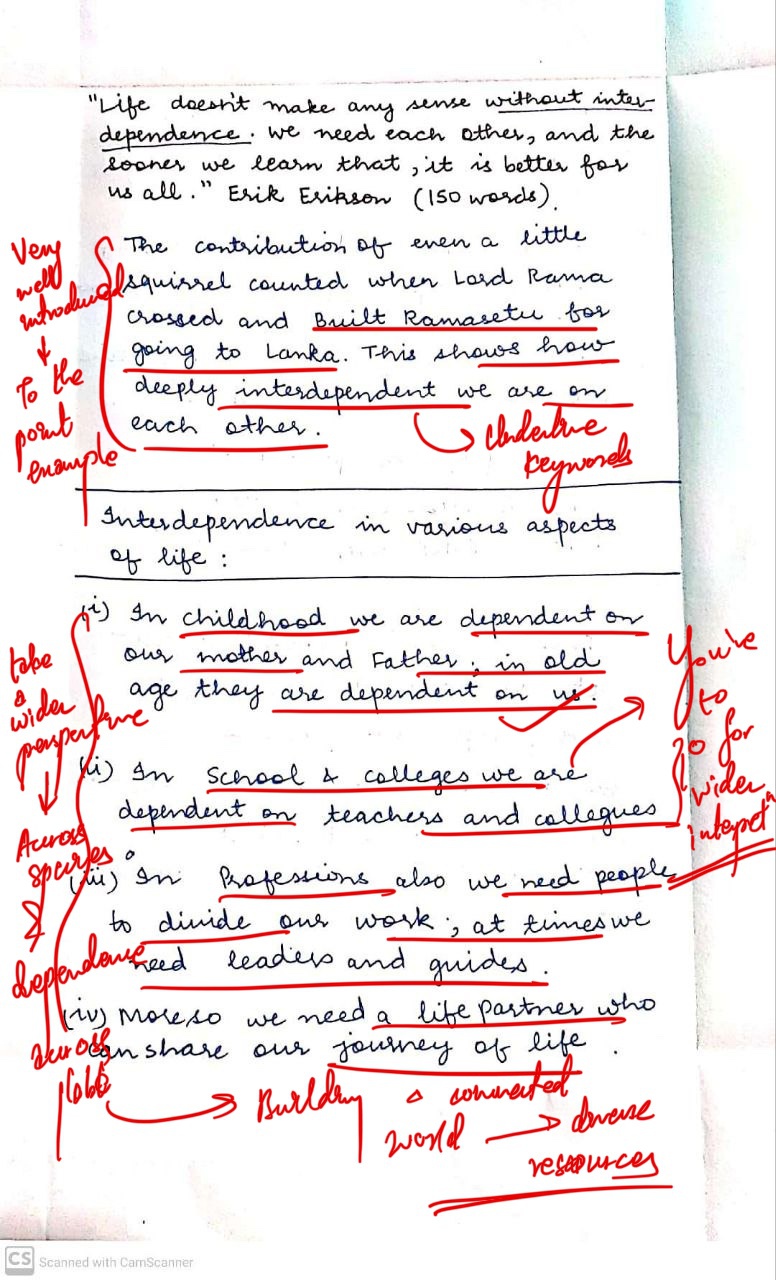 "Life doesn't make any sense without inter-
dependence. We need each other, and the
sooner we learn that, it is better for
us all." Erik Erikson (150 words).
The contribution of even a little
squirrel counted when Lord Rama
crossed and Built Ramasetu for
going to Lanka. This shows how
deeply interdependent we are on
each other.
Very
well
introduced
To the
point
example
Underline
keywords
Interdependence in various aspects
of life :
(i) In childhood we are dependent on
our mother and Father ; in old
age they are dependent on us.
(ii) In School & colleges we are
dependent on teachers and collegues
(iii) In Professions also we need people
to divide our work ; at times we
need leaders and guides.
(iv) Moreso we need a life partner who
can share our journey of life .
take
a
wider
perspective
Across
species
&
dependence
across
You're
to
go for
wider
interpretn
Building
a connected
world
diverse
resources
CS Scanned with CamScanner